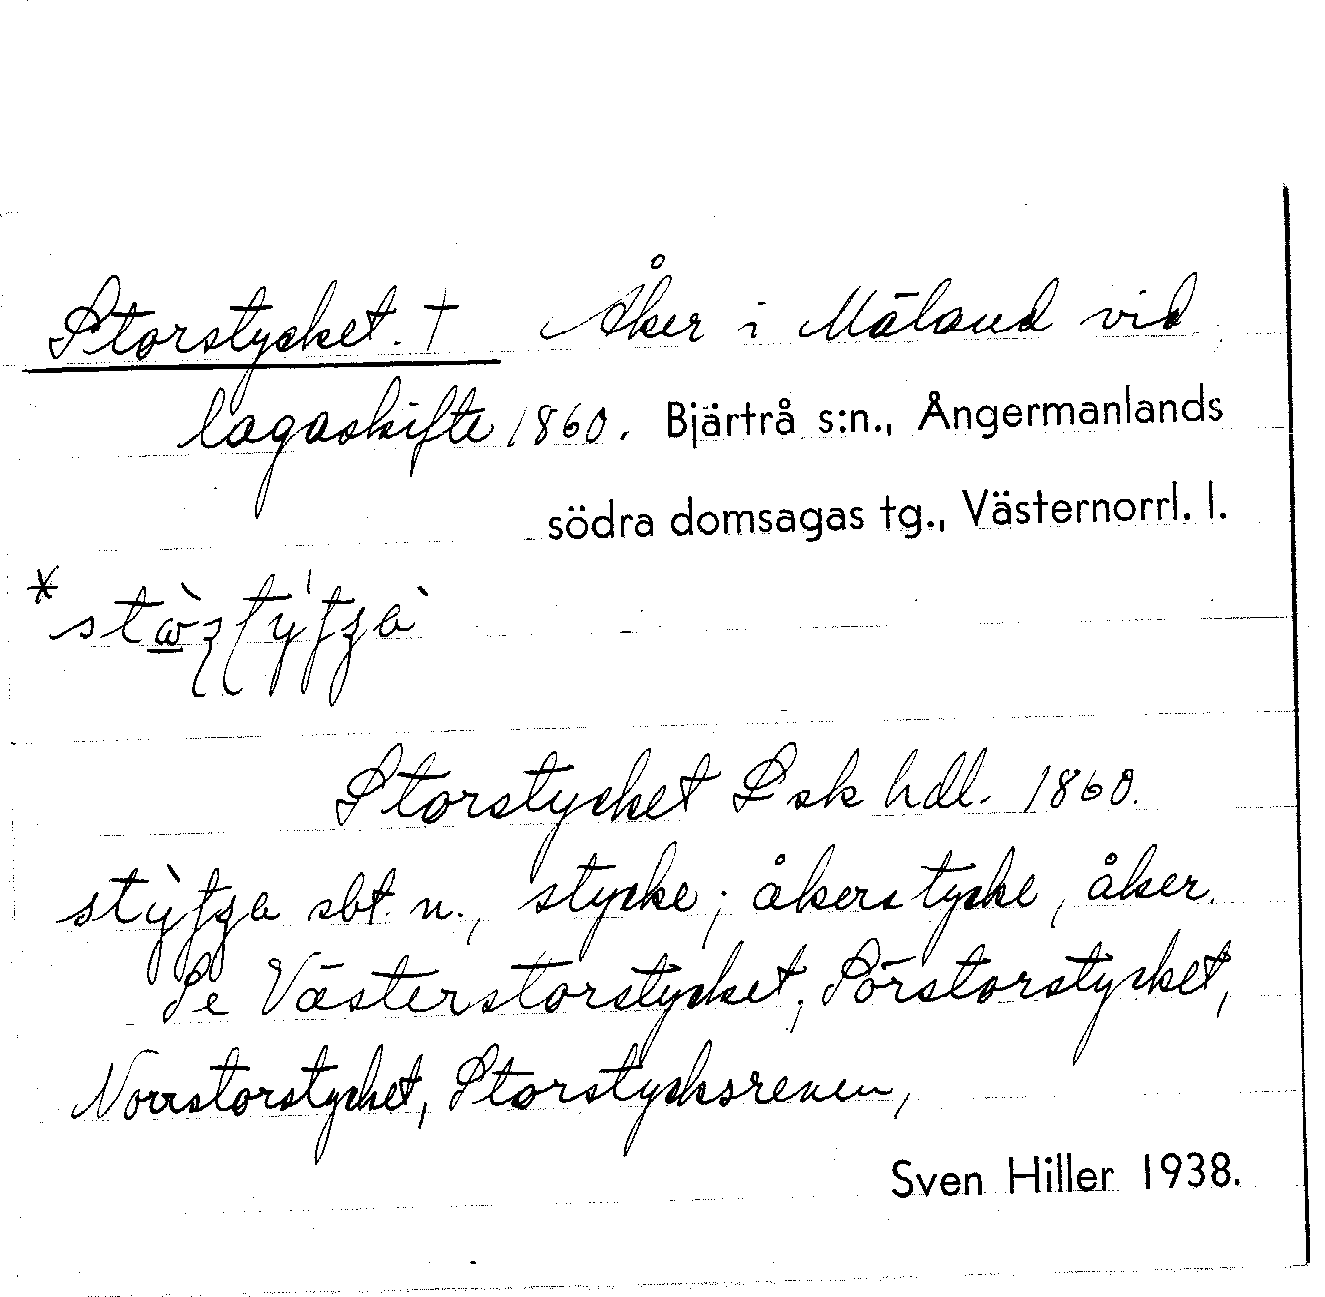 Storstycket. † Åker i Mäland vid
lagaskifte 1860. Bjärtrå s:n., Ångermanlands
södra domsagas tg., Västernorrl. l.
Storstycket Lsk hdl. 1860.
sbt. n., stycke; åkerstycke, åker.
Se Västerstorstycket, Sörstorstycket,
Norrstorstycket, Storstycksrenen,
Sven Hiller 1938.